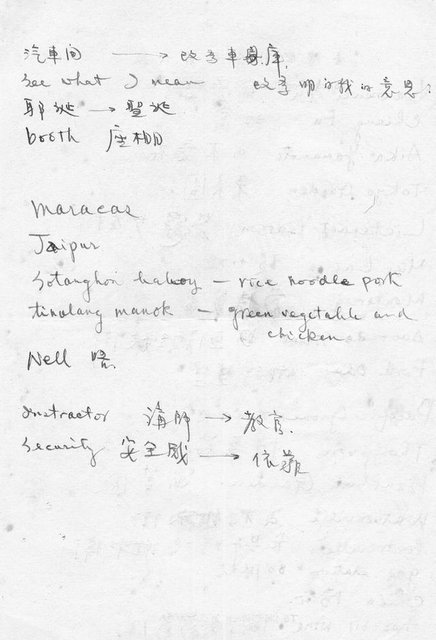 汽車间 → 改為車庫.
See what I mean 改為 明白我的意思:
耶誕 → 聖誕
booth 座
Maracas
Jaipur
Sotanghon – rice noodle pork
tinolang manok – green vegetable and
chicken
Nell
Instructor 講師 → 教官.
Security 安全感 → 依靠